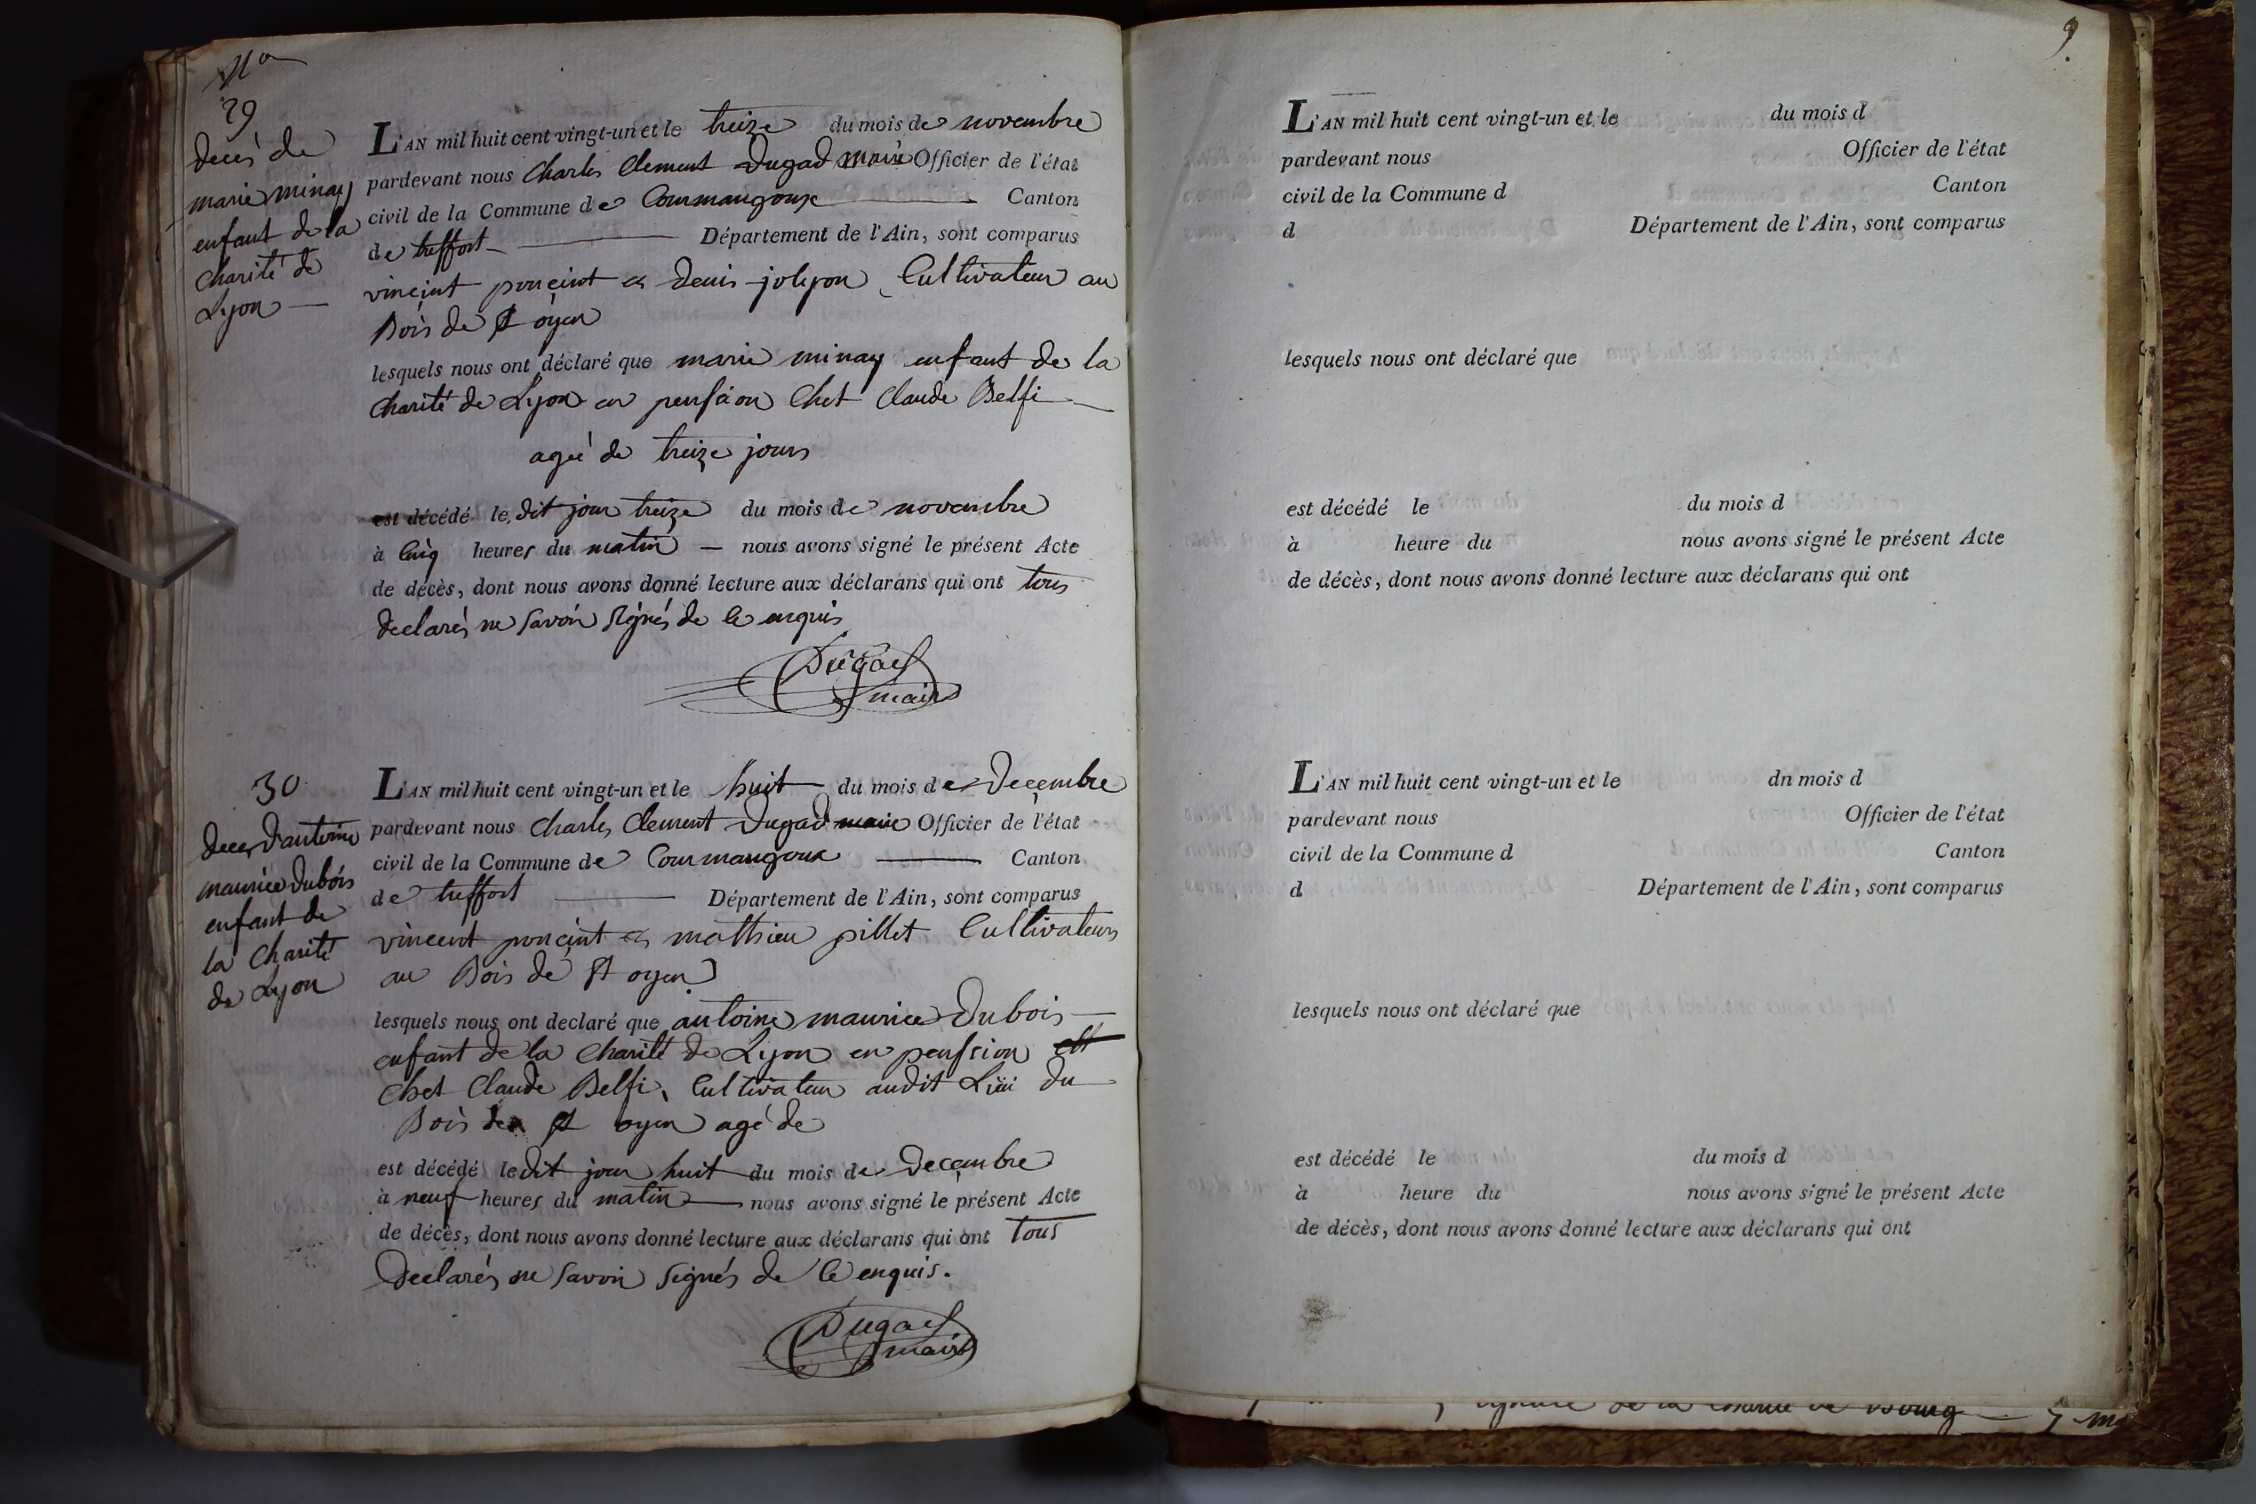 29
L'AN mil huit cent vingt-un et le treize du mois de novembre
deces de
marie minay
enfant de la
Charité de
Lyon
pardevant nous Charles Clement Dugad maire Officier de l'état
civil de la Commune de Courmangoux Canton
de treffort Département de l'Ain, sont comparus
vincent ponceint et denis jolyon Cultivateur au
Bois de st oyen
lesquels nous ont déclaré que marie minay enfant de la
Charité de Lyon en pension Chet Claude Belfi
agée de treize jours
est décédé le dit jour treize du mois de novembre
à Cinq heures du matin nous avons signé le présent Acte
de décès, dont nous avons donné lecture aux déclarans qui ont tous
declarés ne savoir signés de ce enquis
Dugad
maire
30
L'AN mil huit cent vingt-un et le huit du mois de Decembre
deces d'antoine
maurice Dubois
enfant de
la Charité
de Lyon
pardevant nous Charles Clement Dugad maire Officier de l'état
civil de la Commune de Courmangoux Canton
de treffort Département de l'Ain, sont comparus
vincent ponceint et mathieu pillet Cultivateurs
au Bois de st oyen
lesquels nous ont declaré que antoine maurice Dubois
enfant de la Charité de Lyon en penssion est
Chet Claude Belfi, Cultivateur audit Lieu du
Bois de st oyen agé de
est décédé le dit jour huit du mois de Decembre
à neuf heures du matin nous avons signé le présent Acte
de décès, dont nous avons donné lecture aux déclarans qui ont tous
Declarés ne savoir signés de Ce enquis.
Dugad
maire
9.
L'AN mil huit cent vingt-un et le du mois d
pardevant nous Officier de l'état
civil de la Commune d Canton
d Département de l'Ain, sont comparus
lesquels nous ont déclaré que
est décédé le du mois d
à heure du nous avons signé le présent Acte
de décès, dont nous avons donné lecture aux déclarans qui ont
L'AN mil huit cent vingt-un et le dn mois d
pardevant nous Officier de l'état
civil de la Commune d Canton
d Département de l'Ain, sont comparus
lesquels nous ont déclaré que
est décédé le du mois d
à heure du nous avons signé le présent Acte
de décès, dont nous avons donné lecture aux déclarans qui ont